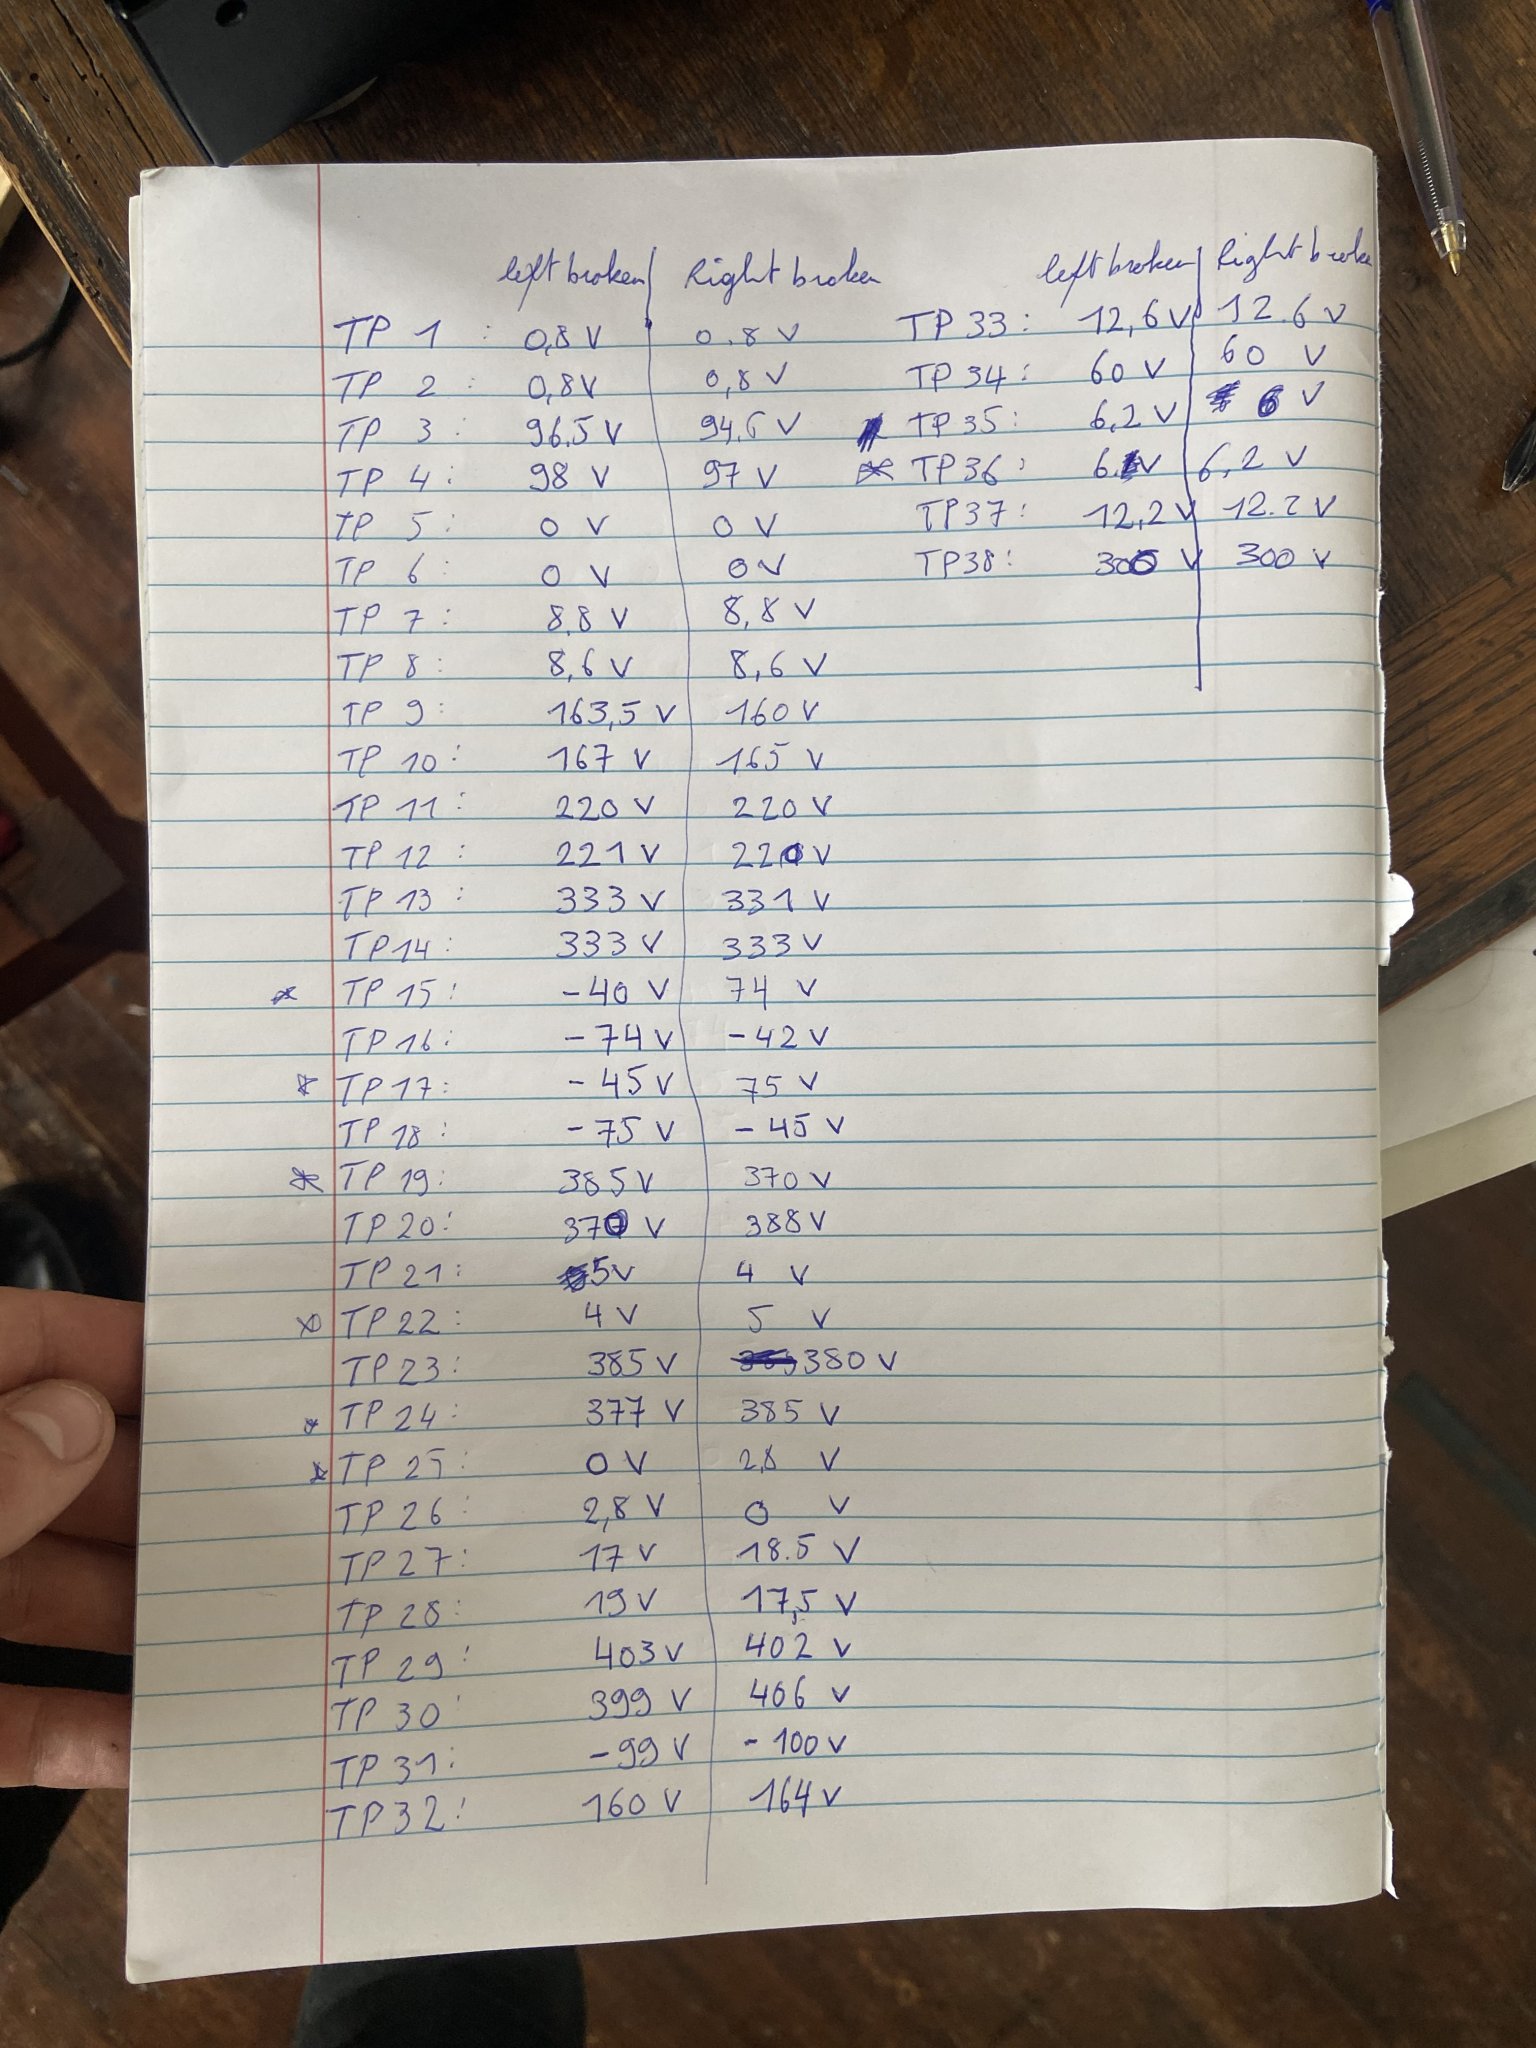 left broken Right broken
TP 1 : 0,8 V 0.8 V
TP 2 : 0,8V 0,8 V
TP 3 : 96.5 V 94.6 V
TP 4 : 98 V 97 V
TP 5 : 0 V 0 V
TP 6 : 0 V 0 V
TP 7 : 8.8 V 8,8 V
TP 8 : 8,6 V 8,6 V
TP 9 : 163,5 V 160 V
TP 10 : 167 V 165 V
TP 11 : 220 V 220 V
TP 12 : 221 V 220 V
TP 13 : 333 V 331 V
TP 14 : 333 V 333 V
* TP 15 : -40 V 74 V
TP 16 : -74 V -42 V
* TP 17 : -45 V 75 V
TP 18 : -75 V -45 V
* TP 19 : 385 V 370 V
TP 20 : 370 V 388 V
TP 21 : 5V 4 V
* TP 22 : 4 V 5 V
TP 23 : 385 V 380 V
* TP 24 : 377 V 385 V
* TP 25 : 0 V 2,8 V
TP 26 : 2,8 V 0 V
TP 27 : 17 V 18.5 V
TP 28 : 19 V 17,5 V
TP 29 : 403 V 402 V
TP 30 : 399 V 406 V
TP 31 : -99 V -100 V
TP 32 : 160 V 164 V
left broken Right broke
TP 33 : 12,6 V 12.6 V
TP 34 : 60 V 60 V
TP 35 : 6,2 V 6 V
* TP 36 : V 6,2 V
TP 37 : 12,2 V 12.2 V
TP 38 : 300 V 300 V